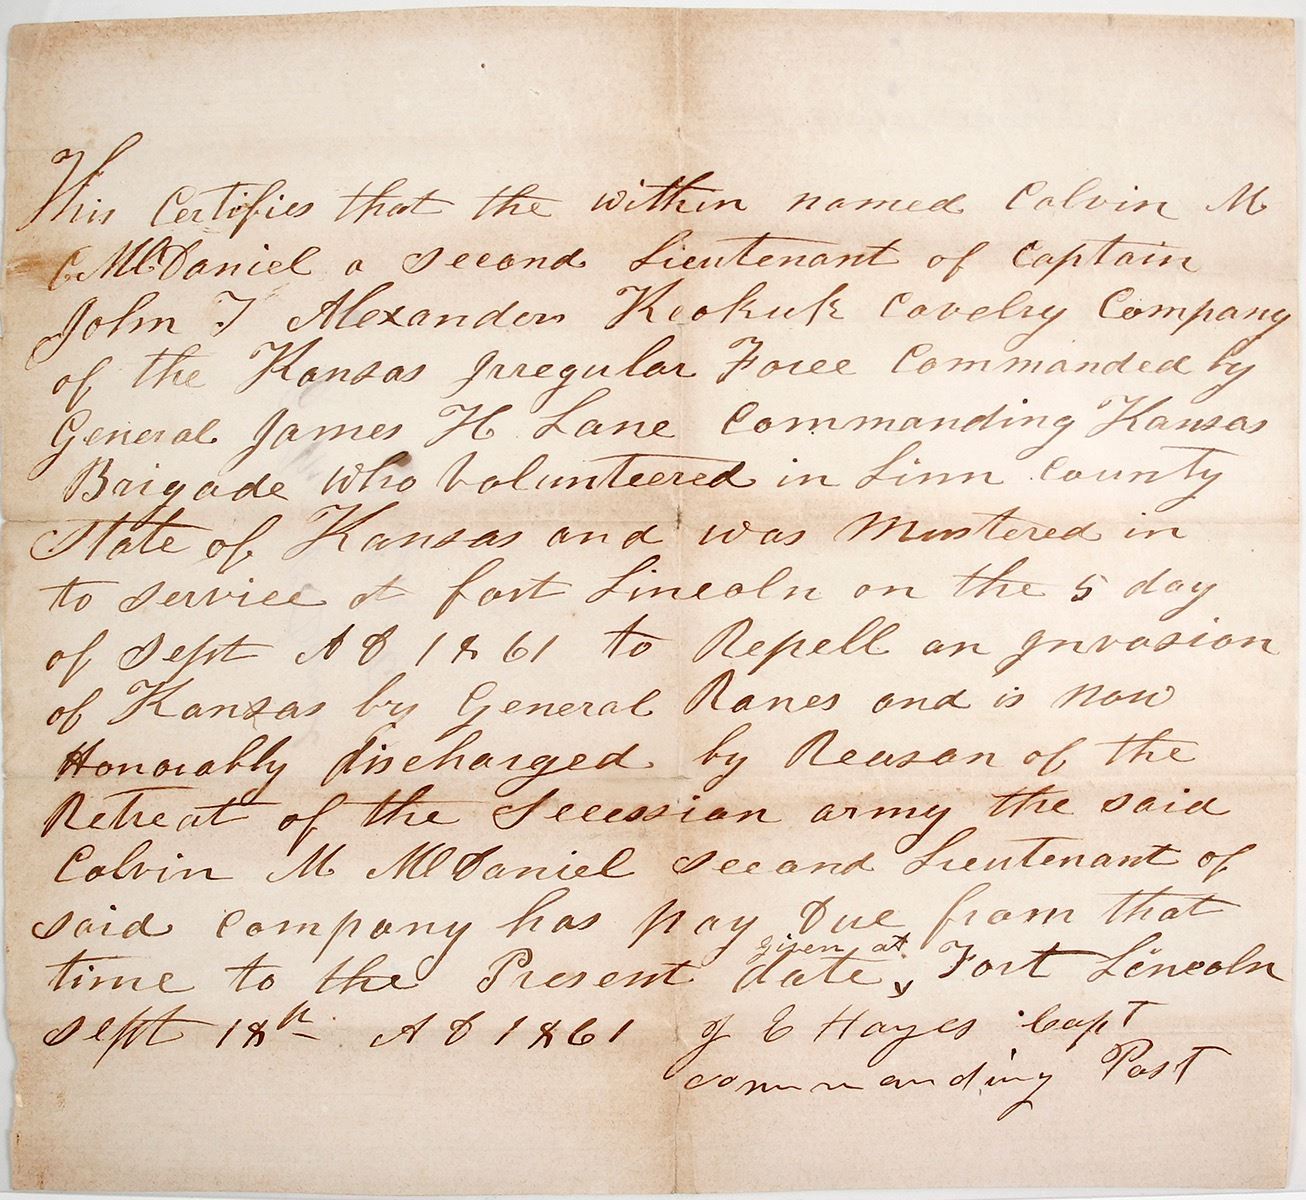 This Certifies that the within named Calvin M
McDaniel a second Lieutenant of Captain
John T Alexanders Keokuk Cavelry Company
of the Kansas Irregular Force Commanded by
General James H Lane Commanding Kansas
Brigade who Volunteered in Linn County
State of Kansas and was Mustered in
to service at fort Lincoln on the 5 day
of Sept A D 1861 to Repell an Invasion
of Kansas by General Ranes and is now
Honorably discharged by Reason of the
Retreat of the Secession army the said
Calvin M McDaniel second Lieutenant of
said Company has pay Due from that
time to the Present date, given at Fort Lincoln
Sept 18th A D 1861 J E Hayes Capt
commanding Post